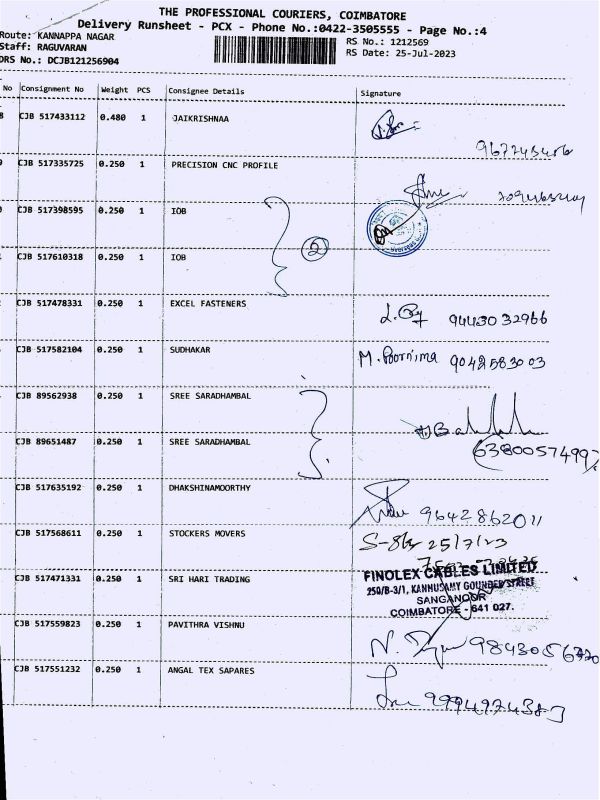 THE PROFESSIONAL COURIERS, COIMBATORE
Delivery Runsheet - PCX - Phone No.:0422-3505555 - Page No.:4
Route: KANNAPPA NAGAR
RS No.: 1212569
Staff: RAGUVARAN
RS Date: 25-Jul-2023
DRS No.: DCJB121256904
No Consignment No Weight PCS Consignee Details Signature
CJB 517433112 0.480 1 JAIKRISHNAA
CJB 517335725 0.250 1 PRECISION CNC PROFILE
CJB 517398595 0.250 1 IOB
2
CJB 517610318 0.250 1 IOB
CJB 517478331 0.250 1 EXCEL FASTENERS
9443032966
CJB 517582104 0.250 1 SUDHAKAR M. Poornima 9042583003
CJB 89562938 0.250 1 SREE SARADHAMBAL
CJB 89651487 0.250 1 SREE SARADHAMBAL
6380057499
CJB 517635192 0.250 1 DHAKSHINAMOORTHY
9642862011
CJB 517568611 0.250 1 STOCKERS MOVERS 25/7/23
CJB 517471331 0.250 1 SRI HARI TRADING
FINOLEX CABLES LIMITED
250/B-3/1, KANNUSAMY GOUNDER STREET
SANGANOOR
COIMBATORE - 641 027.
CJB 517559823 0.250 1 PAVITHRA VISHNU
9843056770
CJB 517551232 0.250 1 ANGAL TEX SAPARES
9994974383